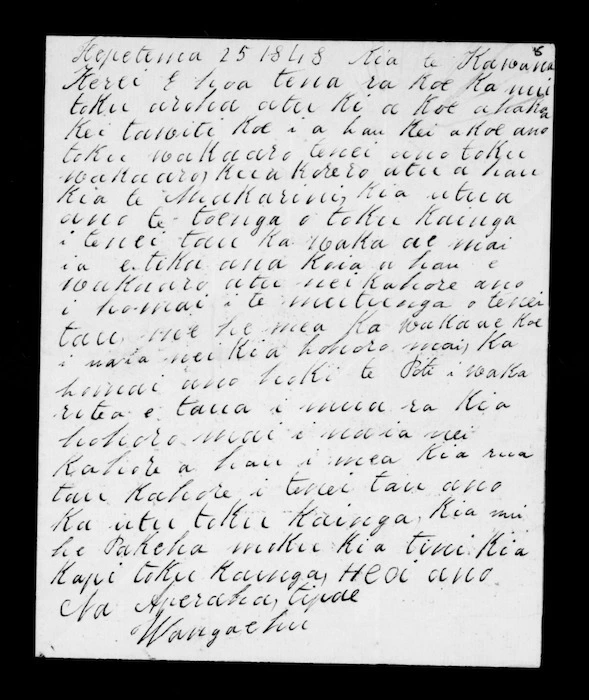 8
Hepetema 25 1848 Kia te Kawana
Kerei E hoa tena ra koe ka nui
toku aroha atu ki a koe ahaka
kei tawiti koe i a hau kei a koe ano
toku wakaaro tenei ano toku
wakaaro, kua korero atu a hau
kia te Makarini, kia utua
ano te toenga o toku kainga
i tenei tau ka waka ae mai
ia e tika ana koia a hau e
wakaaro atu nei kahore ano
i homai i te mutunga o tenei
tau, me he mea ka wakaae koe
i naia nei kia hohoro mai, ka
homai ano hoki te Piti i waka
ritea e taua i mua ra kia
hohoro mai i naia nei
kahore a hau i mea kia rua
tau kahore i tenei tau ano
ka utu toku kainga, kia nui
he Pakeha moku kia tini kia
kapi toku kainga, HEOI ano
Na Aperaha, tipae
Wangaehu